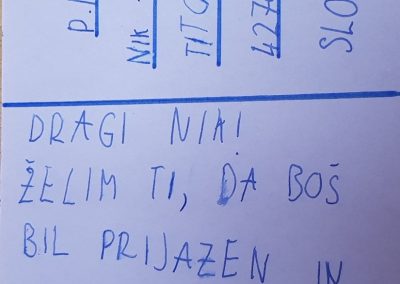 p.
Nik
TITO
427
SLO
DRAGI NIK!
ŽELIM TI, DA BOŠ
BIL PRIJAZEN IN